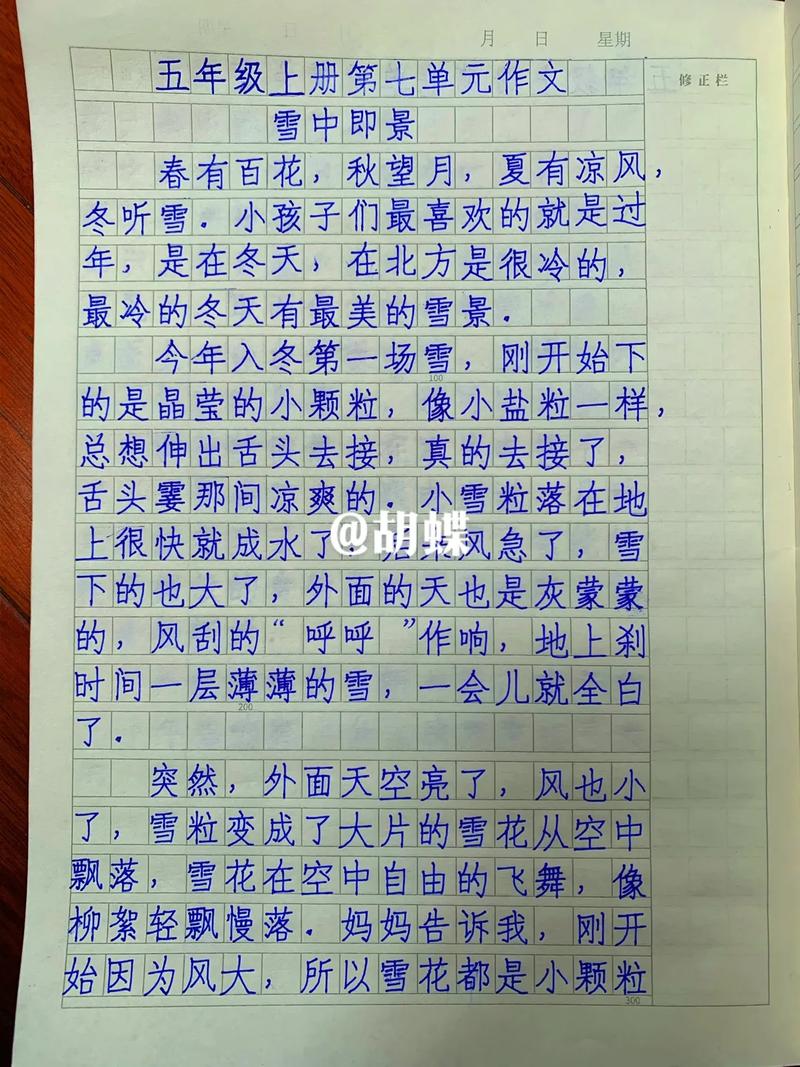 月 日 星期
修正栏
五年级上册第七单元作文
雪中即景
春有百花，秋望月，夏有凉风，
冬听雪．小孩子们最喜欢的就是过
年，是在冬天，在北方是很冷的，
最冷的冬天有最美的雪景．
今年入冬第一场雪，刚开始下
100
的是晶莹的小颗粒，像小盐粒一样，
总想伸出舌头去接，真的去接了，
舌头霎那间凉爽的．小雪粒落在地
上很快就成水了．风急了，雪
@胡蝶
下的也大了，外面的天也是灰蒙蒙
的，风刮的“呼呼”作响，地上刹
时间一层薄薄的雪，一会儿就全白
200
了．
突然，外面天空亮了，风也小
了，雪粒变成了大片的雪花从空中
飘落，雪花在空中自由的飞舞，像
柳絮轻飘慢落．妈妈告诉我，刚开
始因为风大，所以雪花都是小颗粒
300